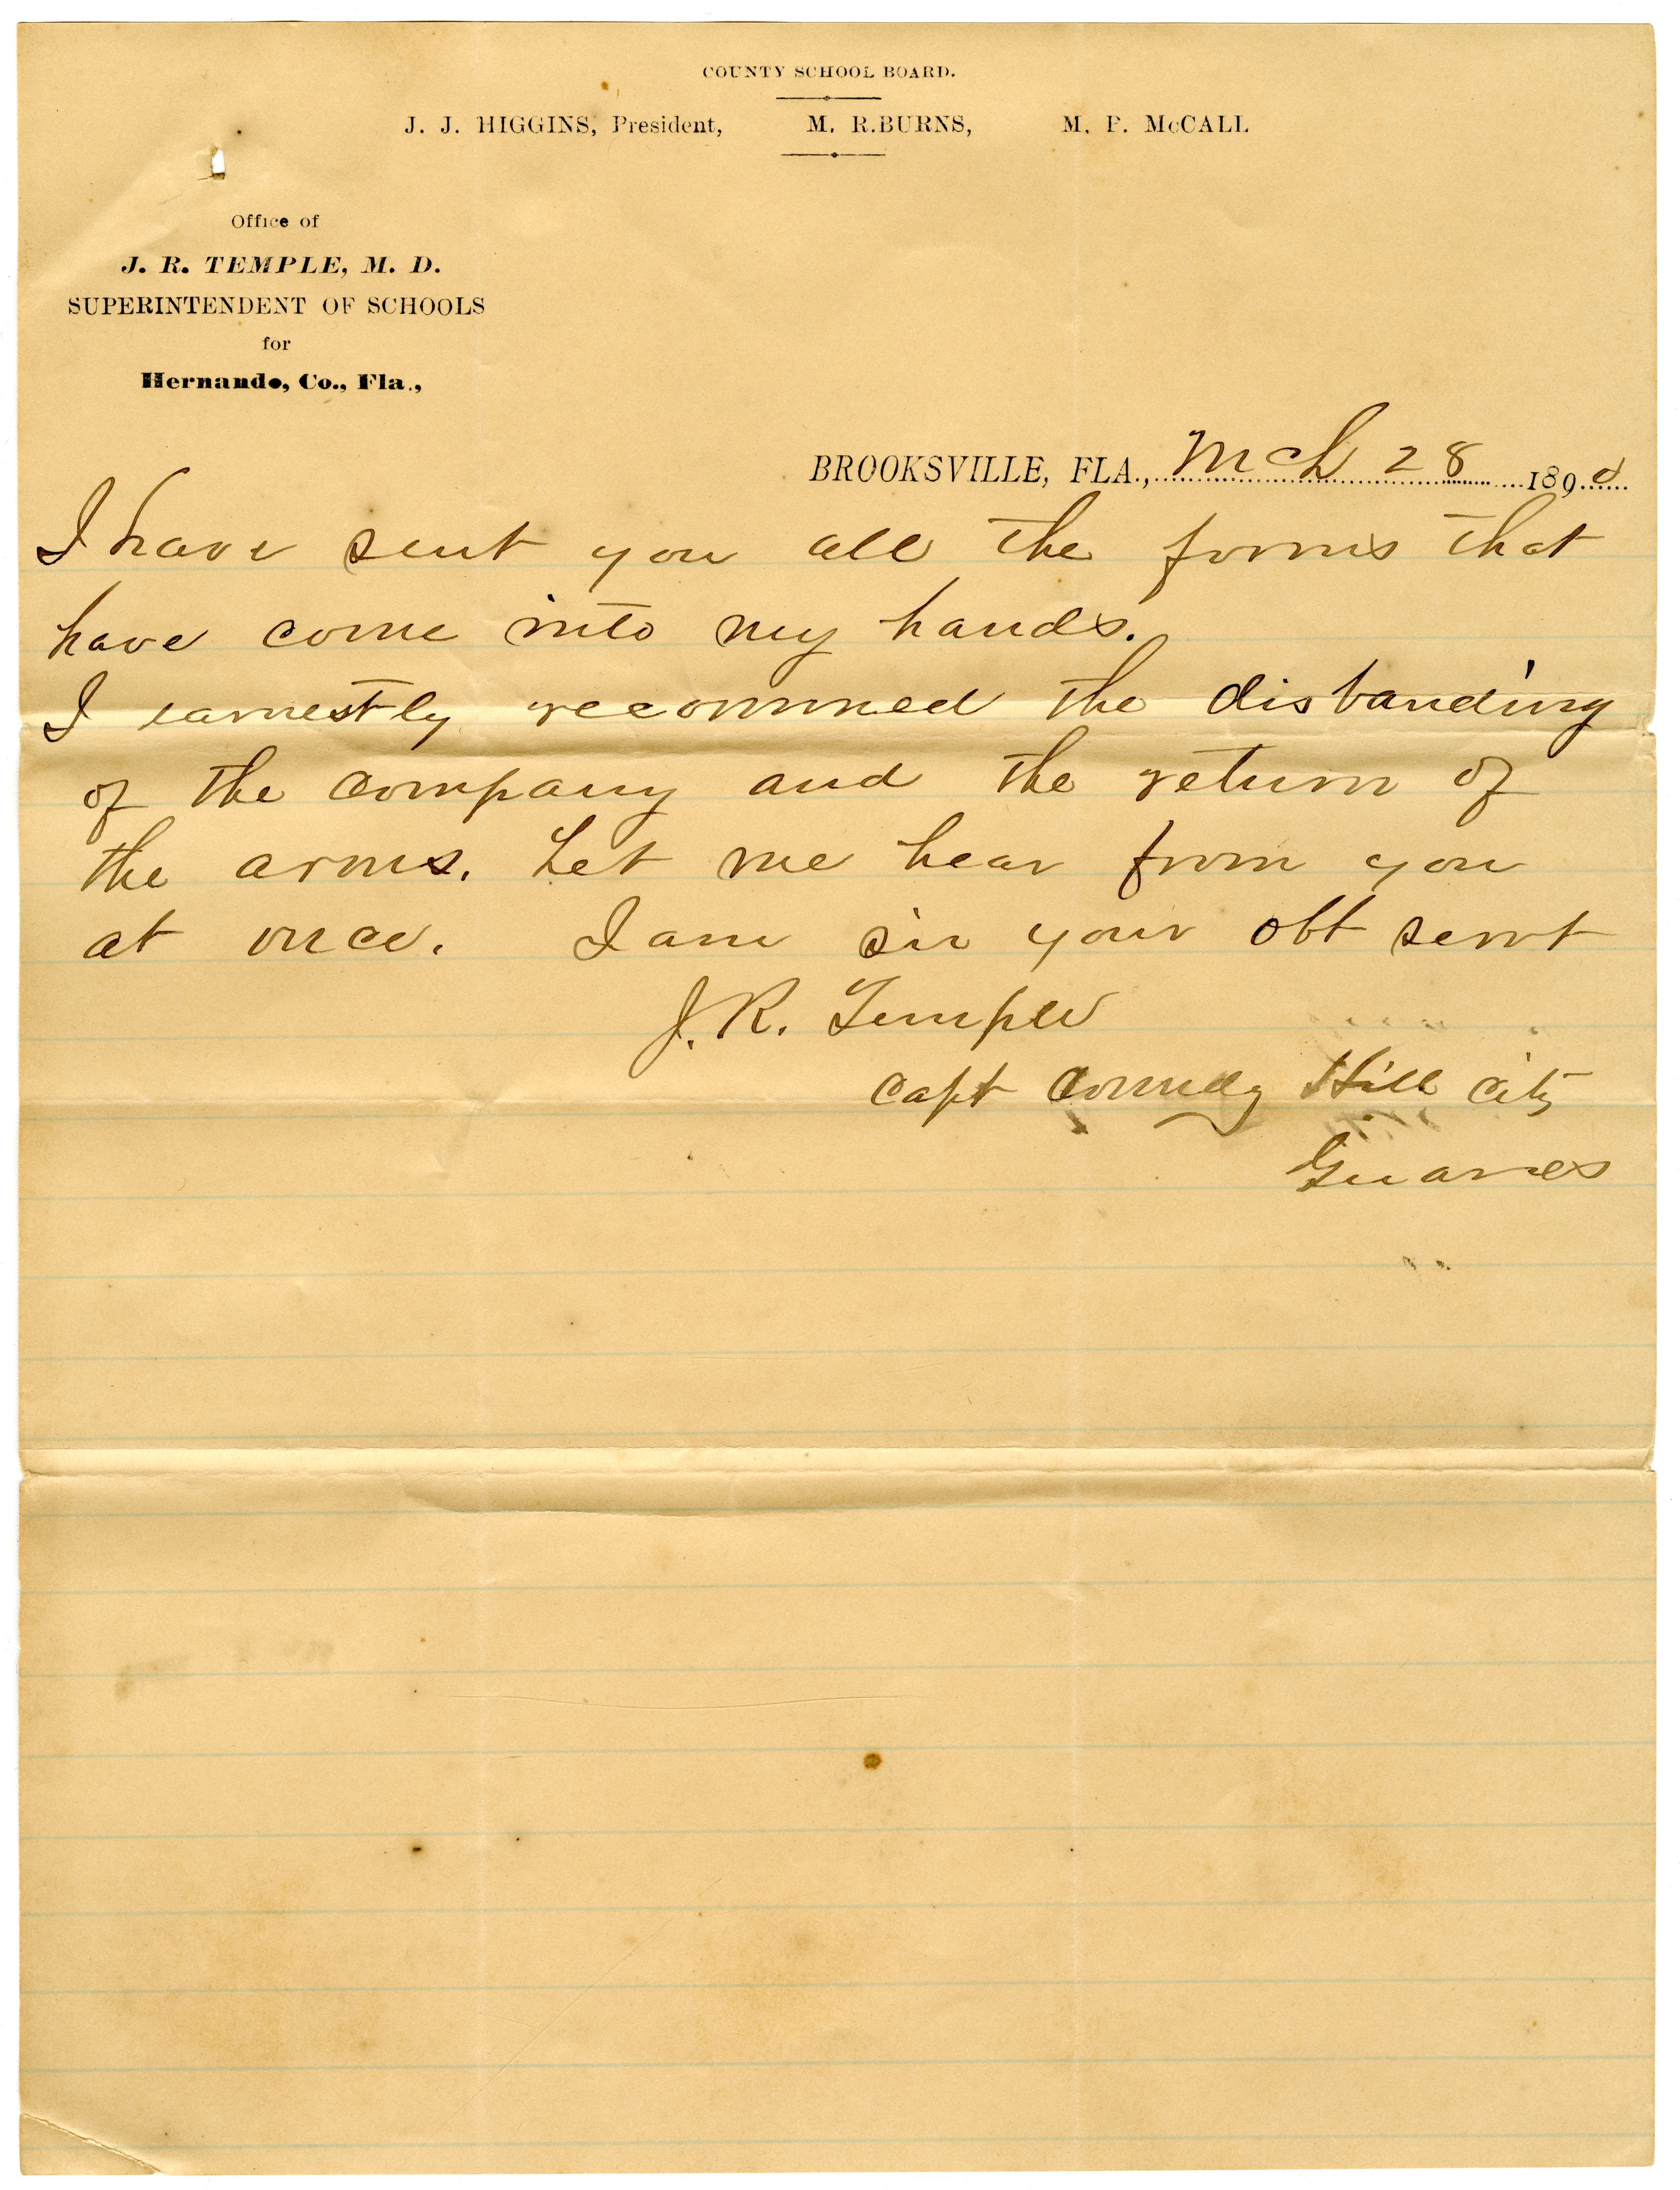 COUNTY SCHOOL BOARD.
J. J. HIGGINS, President, M. R. BURNS, M. P. McCALL
Office of
J. R. TEMPLE, M. D.
SUPERINTENDENT OF SCHOOLS
for
Hernando, Co., Fla.,
BROOKSVILLE, FLA., Mch 28 1890
I have sent you all the forms that
have come into my hands.
I earnestly recommed the disbanding
of the company and the return of
the arms. Let me hear from you
at once. I am sir your obt servt
J. R. Temple
Capt Comdg Hill City
Guards